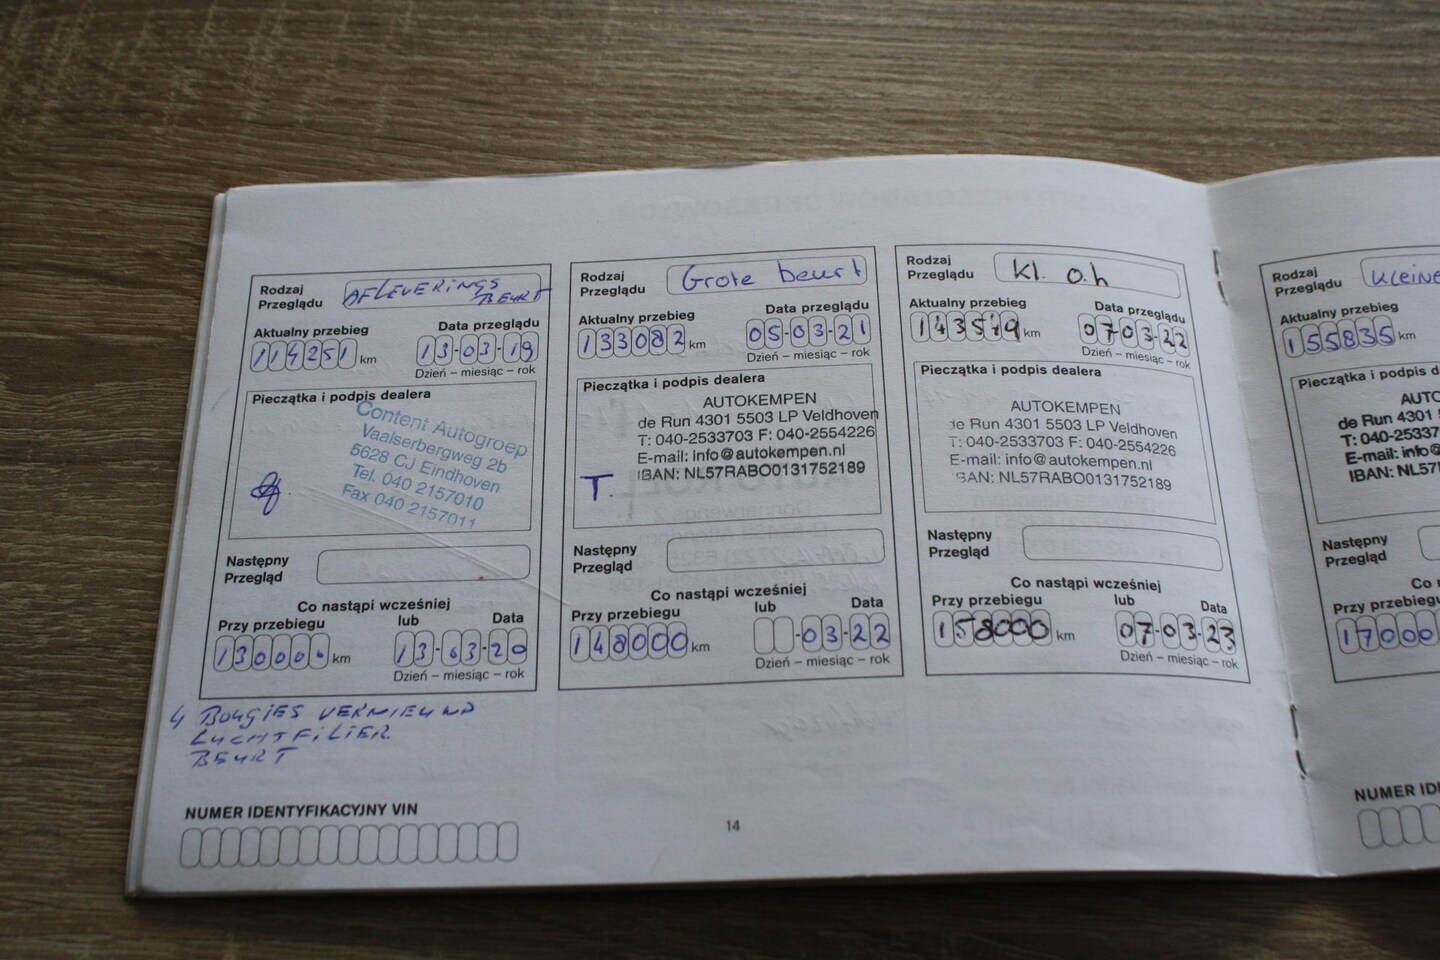 Rodzaj
Przeglądu
AFLEVERINGS
BEURT
Aktualny przebieg
Data przeglądu
114251 km
13-03-19
Dzień – miesiąc – rok
Pieczątka i podpis dealera
Content Autogroep
Vaalserbergweg 2b
5628 CJ Eindhoven
Tel. 040 2157010
Fax 040 2157011
Następny
Przegląd
Co nastąpi wcześniej
Przy przebiegu
lub
Data
130000 km
13-03-20
Dzień – miesiąc – rok
4 BOUGIES VERNIEUWD
LUCHTFILTER
BEURT
NUMER IDENTYFIKACYJNY VIN
Rodzaj
Przeglądu
Grote beurt
Aktualny przebieg
Data przeglądu
133082 km
05-03-21
Dzień – miesiąc – rok
Pieczątka i podpis dealera
AUTOKEMPEN
de Run 4301 5503 LP Veldhoven
T: 040-2533703 F: 040-2554226
E-mail: info@autokempen.nl
IBAN: NL57RABO0131752189
T.
Następny
Przegląd
Co nastąpi wcześniej
Przy przebiegu
lub
Data
148000 km
-03-22
Dzień – miesiąc – rok
14
Rodzaj
Przeglądu
Kl. o.h
Aktualny przebieg
Data przeglądu
143579 km
07-03-22
Dzień – miesiąc – rok
Pieczątka i podpis dealera
AUTOKEMPEN
de Run 4301 5503 LP Veldhoven
T: 040-2533703 F: 040-2554226
E-mail: info@autokempen.nl
IBAN: NL57RABO0131752189
Następny
Przegląd
Co nastąpi wcześniej
Przy przebiegu
lub
Data
158000 km
07-03-23
Dzień – miesiąc – rok
Rodzaj
Przeglądu
Kleine
Aktualny przebieg
155835 km
Pieczątka i podpis d
AUTO
de Run 4301
T: 040-25337
E-mail: info@
IBAN: NL57
Następny
Przegląd
Co n
Przy przebiegu
17000
NUMER ID